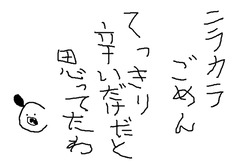 ニラカラ
ごめん
てっきり
辛いだけだと
思ってたわ